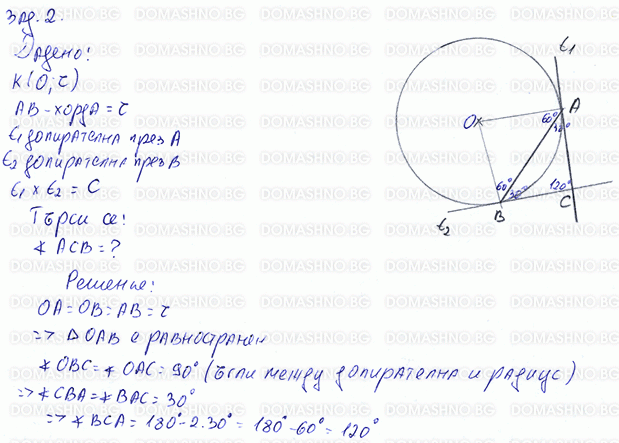 Зад. 2.
Дадено:
K(O; r)
AB - хорда = r
t₁ допирателна през A
t₂ допирателна през B
t₁ x t₂ = C
Търси се:
∢ ACB = ?
Решение:
OA = OB = AB = r
=> △ OAB е равностранен
∢ OBC = ∢ OAC = 90° (ъгли между допирателна и радиус)
=> ∢ CBA = ∢ BAC = 30°
=> ∢ BCA = 180° - 2.30° = 180° - 60° = 120°
t₁
O
A
60°
30°
60°
30°
120°
B
C
t₂
DOMASHNO.BG